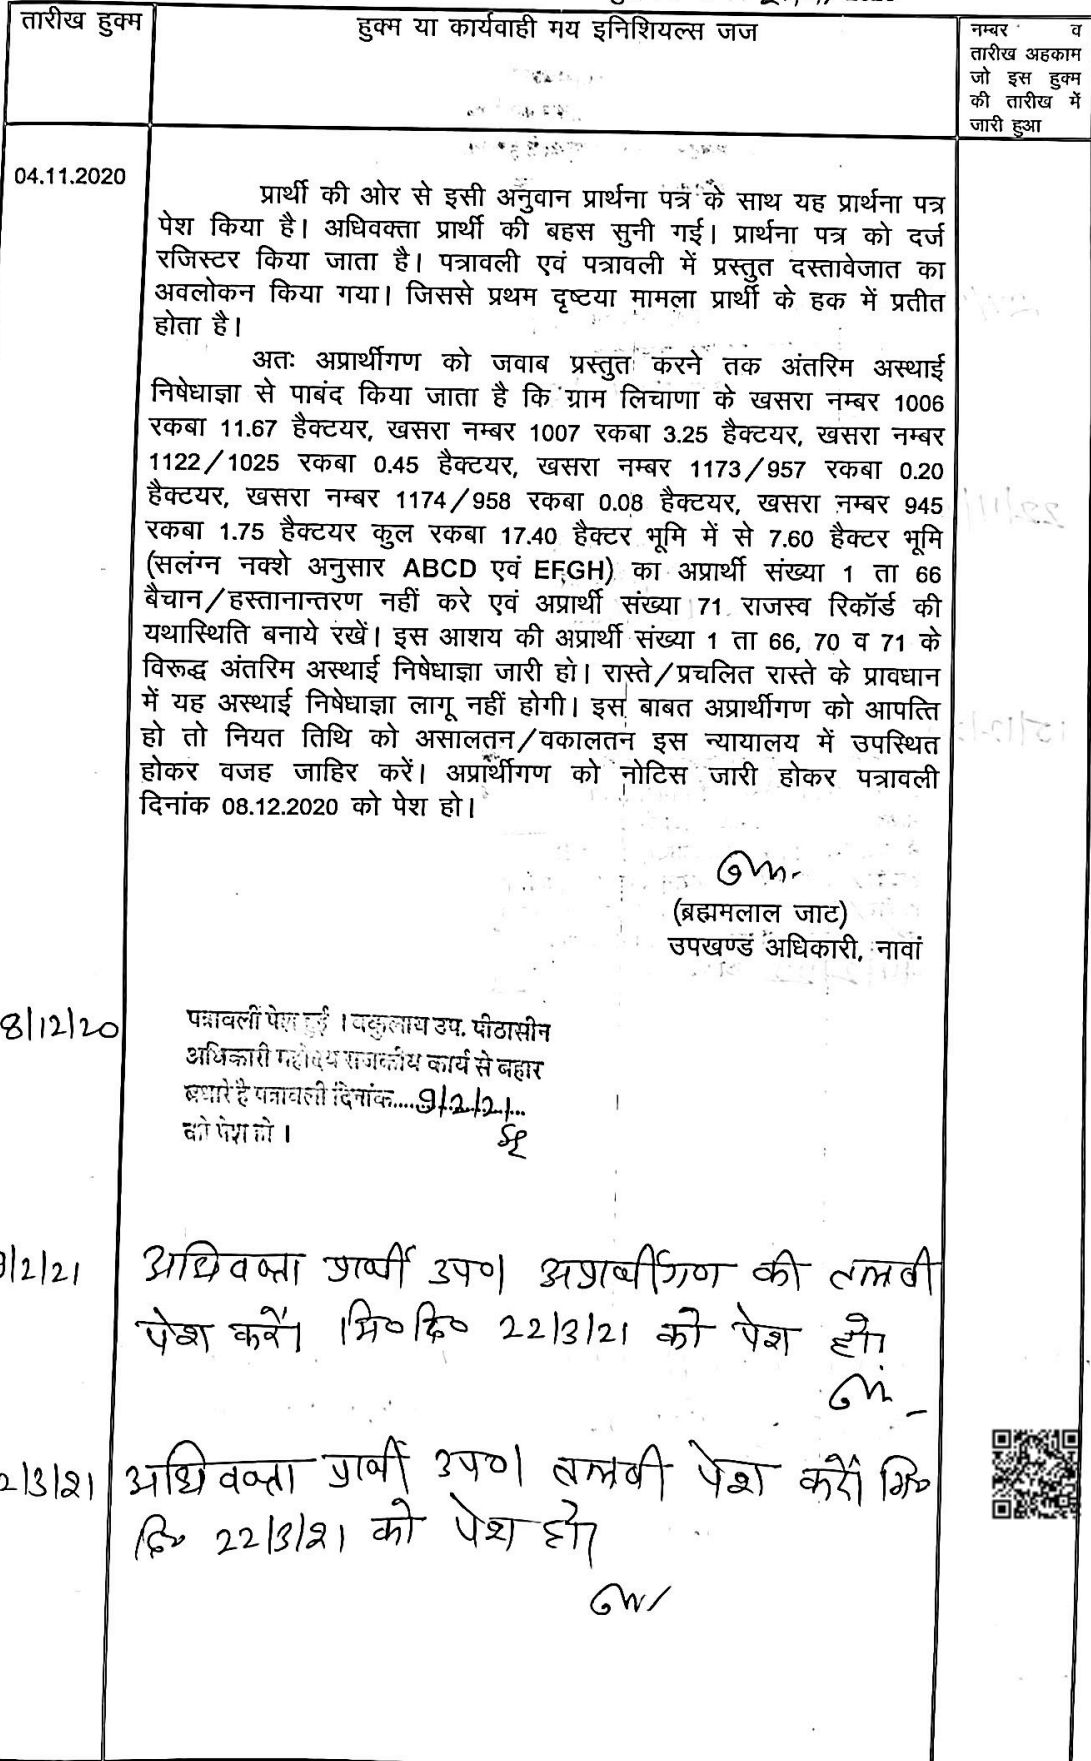 तारीख हुक्म
हुक्म या कार्यवाही मय इनिशियल्स जज
नम्बर व
तारीख अहकाम
जो इस हुक्म
की तारीख में
जारी हुआ
04.11.2020
प्रार्थी की ओर से इसी अनुवान प्रार्थना पत्र के साथ यह प्रार्थना पत्र
पेश किया है। अधिवक्ता प्रार्थी की बहस सुनी गई। प्रार्थना पत्र को दर्ज
रजिस्टर किया जाता है। पत्रावली एवं पत्रावली में प्रस्तुत दस्तावेजात का
अवलोकन किया गया। जिससे प्रथम दृष्टया मामला प्रार्थी के हक में प्रतीत
होता है।
अतः अप्रार्थीगण को जवाब प्रस्तुत करने तक अंतरिम अस्थाई
निषेधाज्ञा से पाबंद किया जाता है कि ग्राम लिचाणा के खसरा नम्बर 1006
रकबा 11.67 हैक्टयर, खसरा नम्बर 1007 रकबा 3.25 हैक्टयर, खसरा नम्बर
1122/1025 रकबा 0.45 हैक्टयर, खसरा नम्बर 1173/957 रकबा 0.20
हैक्टयर, खसरा नम्बर 1174/958 रकबा 0.08 हैक्टयर, खसरा नम्बर 945
रकबा 1.75 हैक्टयर कुल रकबा 17.40 हैक्टर भूमि में से 7.60 हैक्टर भूमि
(सलंग्न नक्शे अनुसार ABCD एवं EFGH) का अप्रार्थी संख्या 1 ता 66
बैचान/हस्तानान्तरण नहीं करे एवं अप्रार्थी संख्या 71 राजस्व रिकॉर्ड की
यथास्थिति बनाये रखें। इस आशय की अप्रार्थी संख्या 1 ता 66, 70 व 71 के
विरूद्ध अंतरिम अस्थाई निषेधाज्ञा जारी हो। रास्ते/प्रचलित रास्ते के प्रावधान
में यह अस्थाई निषेधाज्ञा लागू नहीं होगी। इस बाबत अप्रार्थीगण को आपत्ति
हो तो नियत तिथि को असालतन/वकालतन इस न्यायालय में उपस्थित
होकर वजह जाहिर करें। अप्रार्थीगण को नोटिस जारी होकर पत्रावली
दिनांक 08.12.2020 को पेश हो।
(ब्रह्मलाल जाट)
उपखण्ड अधिकारी, नावां
8/12/20
पत्रावली पेश हुई । वकुलाय उप. पीठासीन
अधिकारी महोदय राजकीय कार्य से बहार
पधारे है पत्रावली दिनांक....9/2/21...
को पेश हो ।
9/2/21
अधिवक्ता प्रार्थी उप० अप्रार्थीगण की तलबी
पेश करें। मि० दि० 22/3/21 को पेश हो।
2/3/21
अधिवक्ता प्रार्थी उप० तलबी पेश करें। मि०
दि० 22/3/21 को पेश हो।